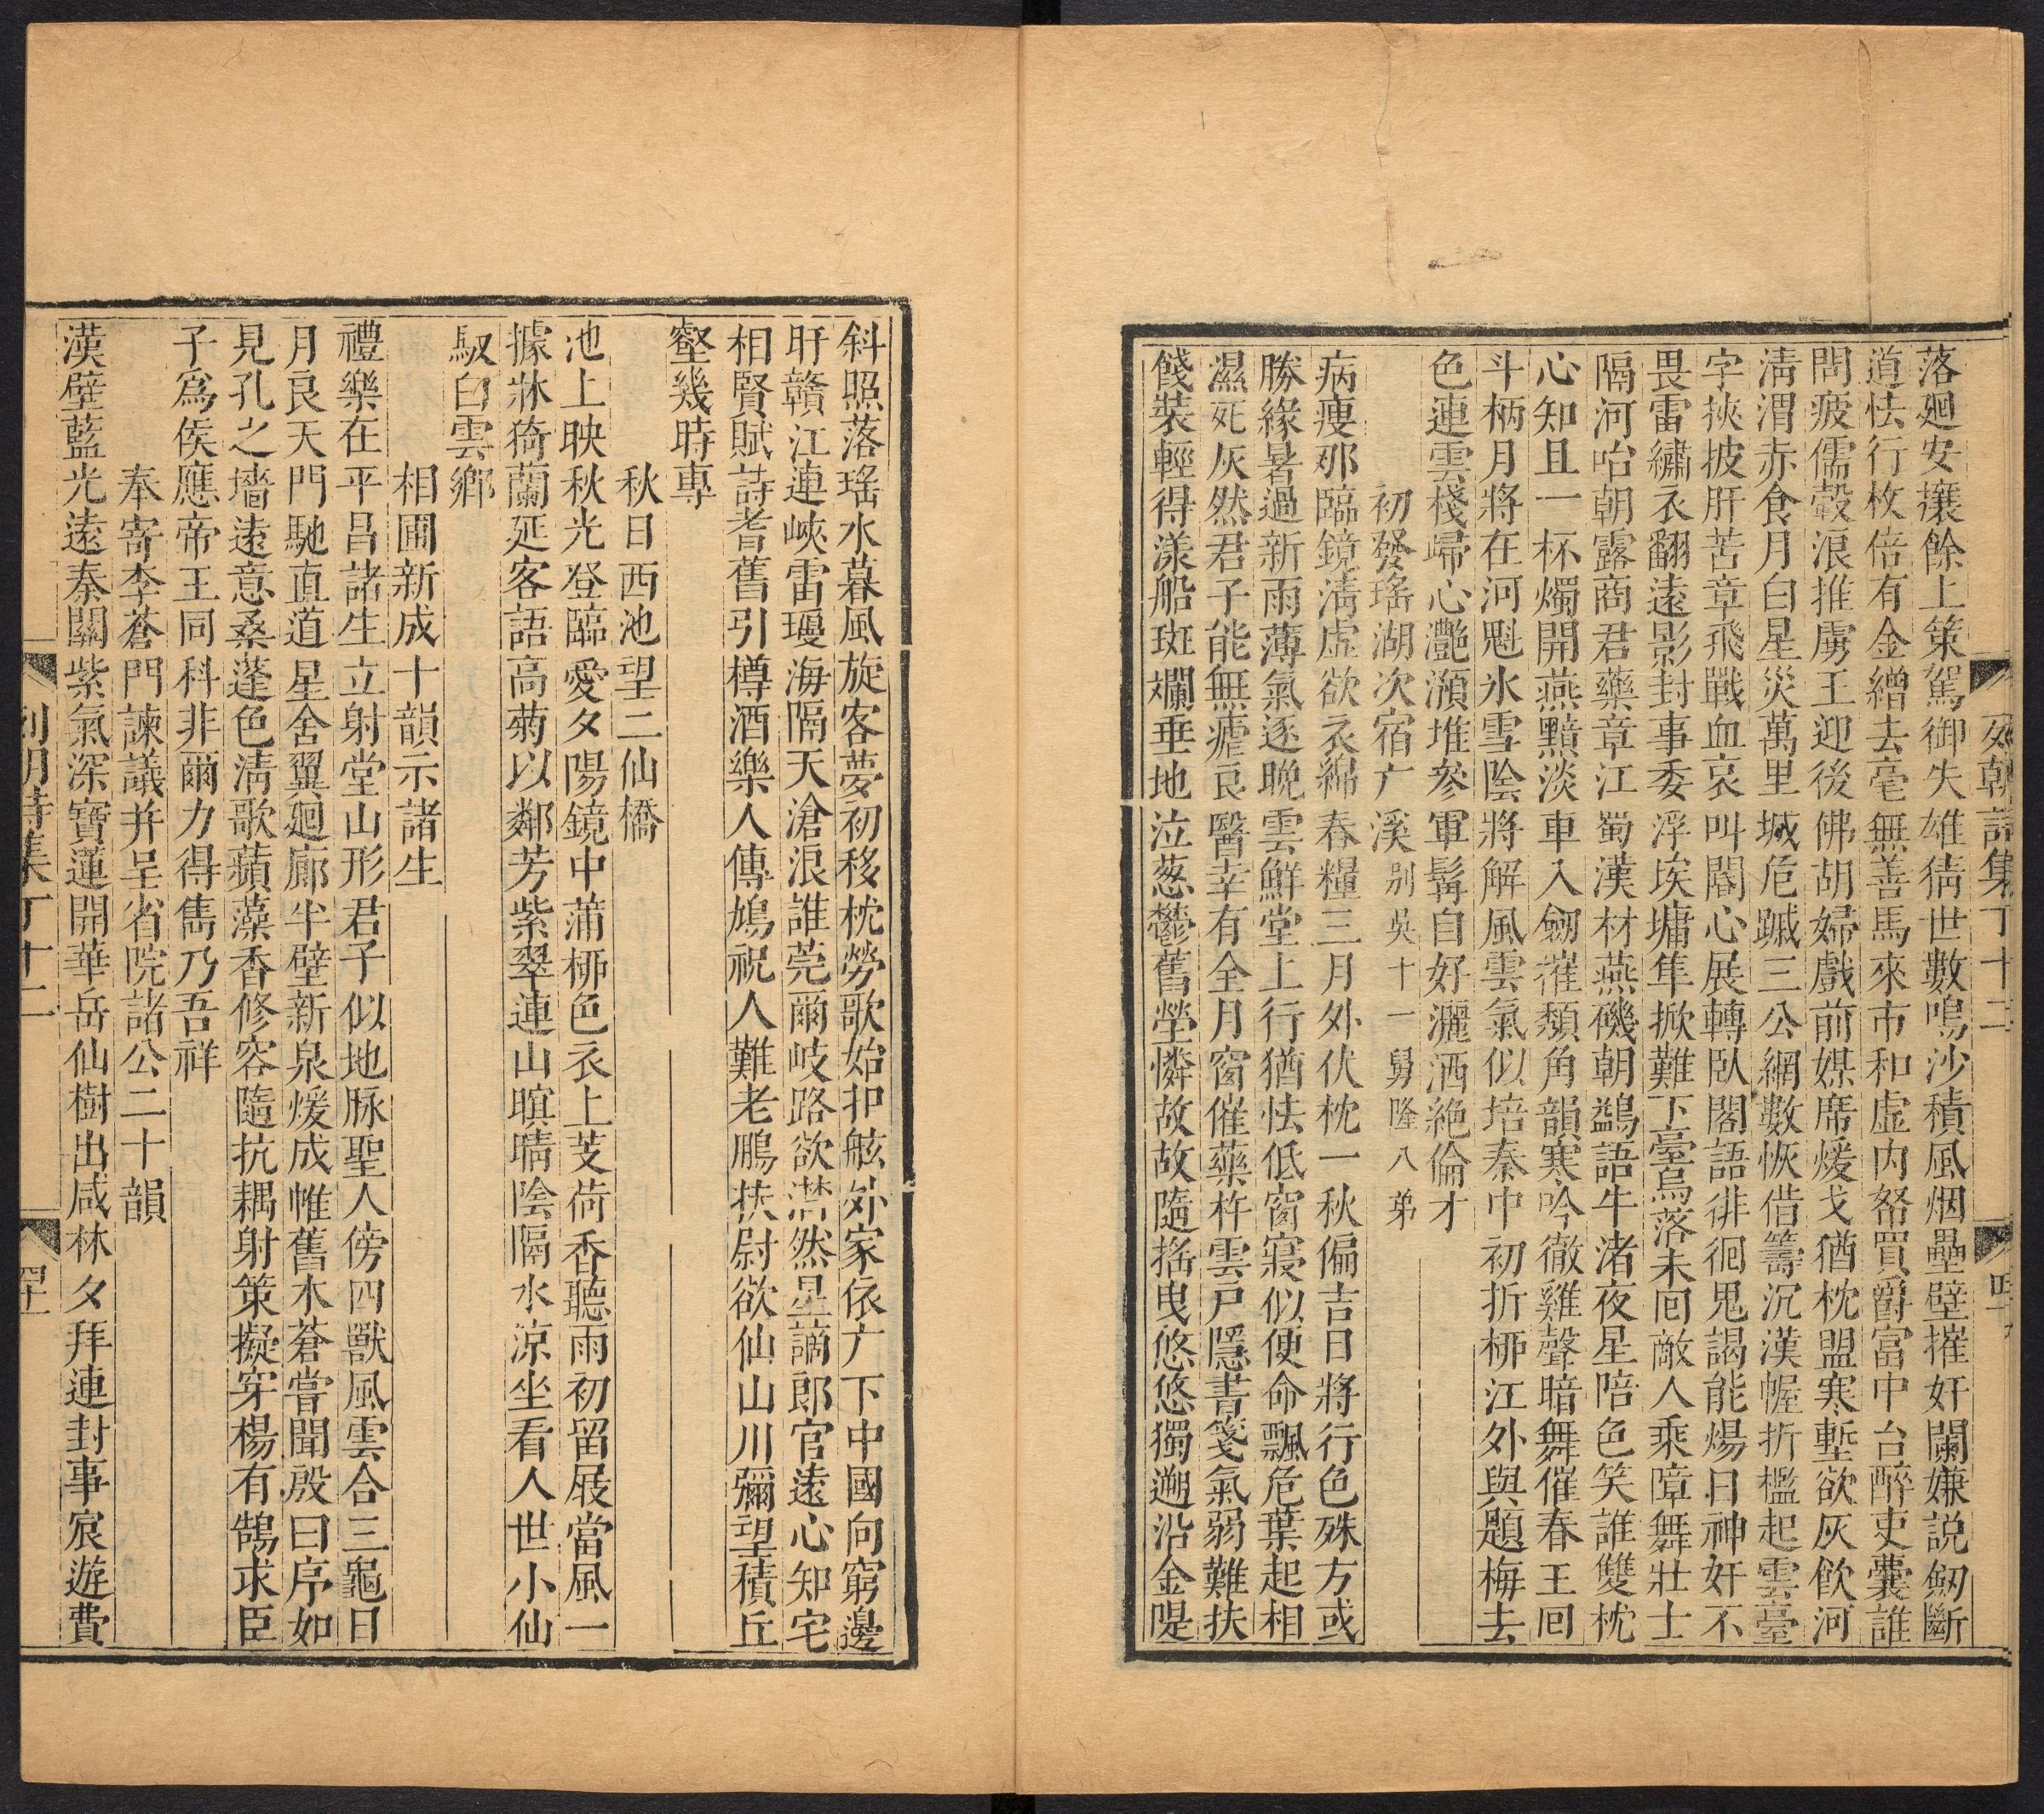 落廻安攘餘上策駕御失雄猜世數鳴沙積風烟壘壁摧奸闌嫌説劒斷
道怯行枚倍有金繒去毫無善馬來市和虛内帑買爵富中台醉吏囊誰
問疲儒轂浪推虜王迎後佛胡婦戲前媒席煖戈猶枕盟寒塹欲灰飲河
淸渭赤食月白星災萬里城危蹠三公網數恢借籌沉漢幄折檻起雲臺
字挾披肝苦章飛戰血哀叫閽心展轉臥閣語徘徊鬼謁能煬日神奸不
畏雷繡衣翻遠影封事委浮埃墉隼掀難下臺烏落未囘敵人乘障舞壯士
隔河咍朝露商君藥章江蜀漢材燕磯朝鷁語牛渚夜星陪色笑誰雙枕
心知且一杯燭開燕黯淡車入劒摧頽角韻寒吟徹雞聲暗舞催春王囘
斗柄月將在河魁氷雪陰將解風雲氣似培秦中初折柳江外與題梅去
色連雲棧歸心灔澦堆參軍髯自好灑洒絶倫才
初發瑤湖次宿广溪别吳十一舅隆八弟
病瘦那臨鏡淸虛欲衣綿春糧三月外伏枕一秋偏吉日將行色殊方或
勝緣暑過新雨薄氣逐晩雲鮮堂上行猶怯低窗寢似便命飄危葉起相
濕死灰然君子能無瘧良醫幸有全月窗催藥杵雲戸隱蓍箋氣弱難扶
餞裝輕得漾船斑斕垂地泣葱鬱舊塋憐故故隨搖曳悠悠獨遡沿金隄
斜照落瑤水暮風旋客夢初移枕勞歌始扣舷外家依广下中國向窮邊
盱贛江連峽雷瓊海隔天滄浪誰莞爾岐路欲潸然星謫郎官遠心知宅
相賢賦詩耆舊引樽酒樂人傳鳩祝人難老鵬扶尉欲仙山川彌望積丘
壑幾時專
秋日西池望二仙橋
池上映秋光登臨愛夕陽鏡中蒲柳色衣上芰荷香聽雨初留屐當風一
據牀猗蘭延客語高菊以鄰芳紫翠連山暝晴陰隔水涼坐看人世小仙
馭白雲鄉
相圃新成十韻示諸生
禮樂在平昌諸生立射堂山形君子似地脉聖人傍四獸風雲合三龜日
月良天門馳直道星舍翼廻廊半壁新泉煖成帷舊木蒼嘗聞殷曰序如
見孔之墻遠意桑蓬色淸歌蘋藻香修容隨抗耦射策擬穿楊有鵠求臣
子爲侯應帝王同科非爾力得雋乃吾祥
奉寄李蒼門諫議并呈省院諸公二十韻
漢壁藍光遠秦關紫氣深寶蓮開華岳仙樹出咸林夕拜連封事宸遊費
列朝詩集丁十二